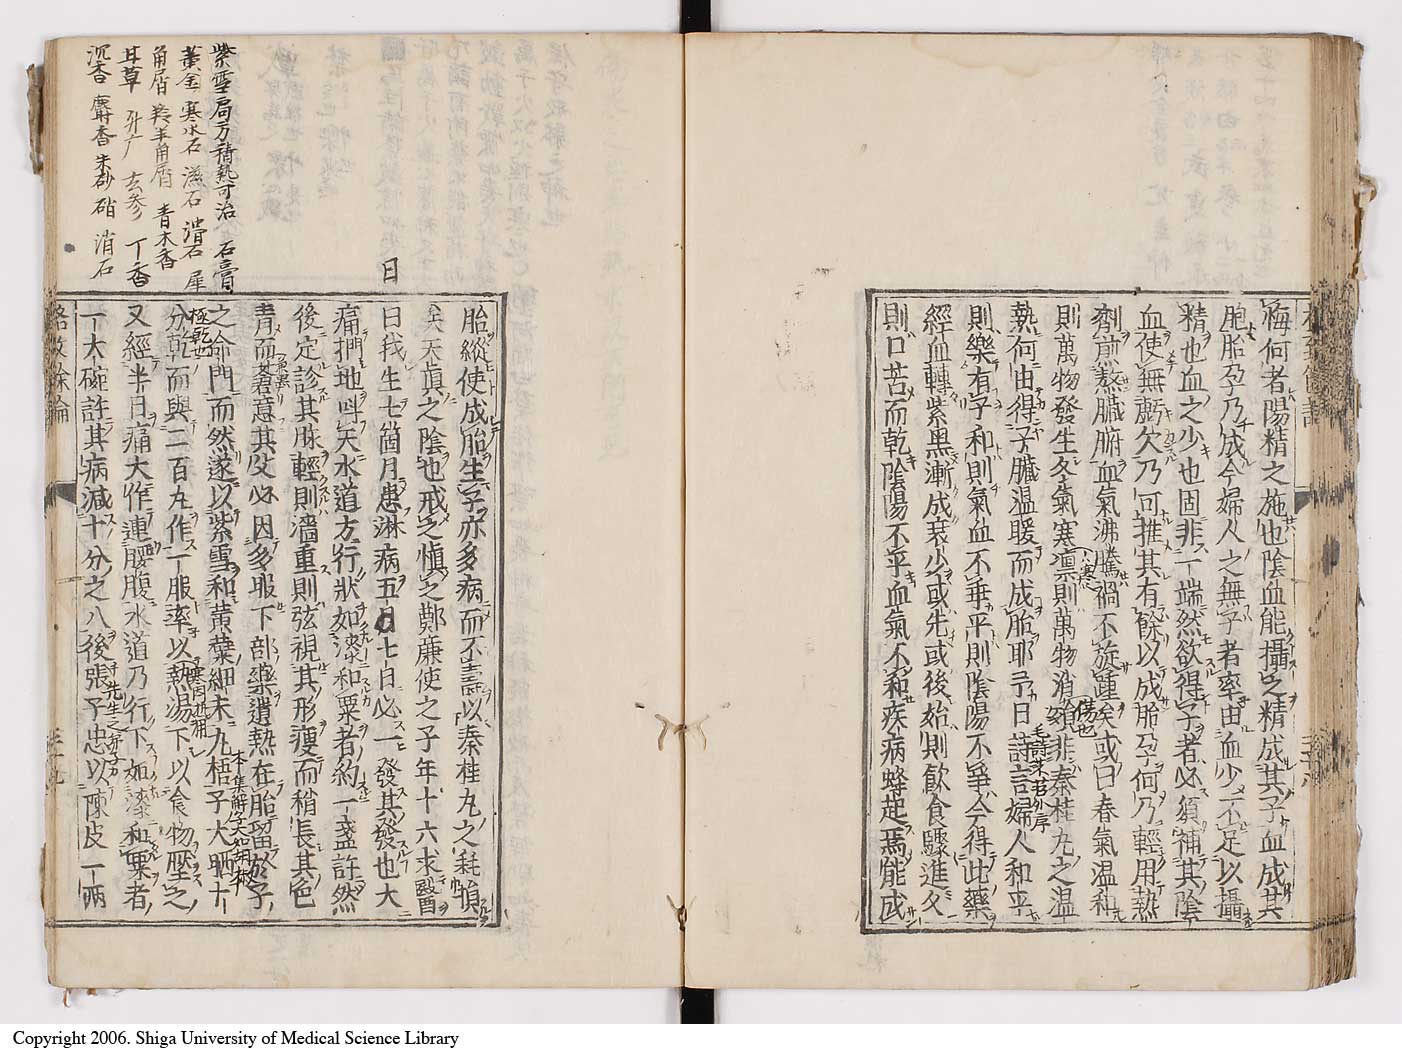 悔何者陽精之施也陰血能攝之精成其子血成其
胞胎孕乃成今婦人之無子者率由血少不足以攝
精也血之少也固非一端然欲得子者必須補其陰
血使無虧欠乃可推其有餘以成胎孕何乃輕用熱
劑煎熬臟腑血氣沸騰禍不旋踵矣或曰春氣温和
則萬物發生冬氣寒凛則萬物消殞非秦桂丸之温
傷也
熱何由得子臟温暖而成胎耶予曰詩言婦人和平
則樂有子和則氣血不乖平則陰陽不爭今得此藥
經血轉紫黑漸成衰少或先或後始則飲食驟進久
則口苦而乾陰陽不平血氣不和疾病蜂起焉能成
胎縱使成胎生子亦多病而不壽以秦桂丸之耗損
矣天真之陰也戒之慎之鄭廉使之子年十六求醫
曰
曰我生七箇月患淋病五日七日必一發其發也大
痛捫地叫天水道方行狀如漆和粟者約一盞許然
後定診其脉輕則濇重則弦視其形瘦而稍長其色
青而蒼意其父必因多服下部藥遺熱在胎留於子
之命門而然遂以紫雪和黄蘗細末丸梧子大晒十
極乾也
分乾而與二百丸作一服率以熱湯下以食物壓之
又經半日痛大作連腰腹水道乃行下如漆和粟者
一大碗許其病減十分之八後張子忠以陳皮一兩
格致餘論
紫雪局方積熱可治 石膏
黄金 寒水石 滋石 滑石 犀
角屑 羚羊角屑 青木香
甘草 升广 玄参 丁香
沉香 麝香 朱砂 硝 消石